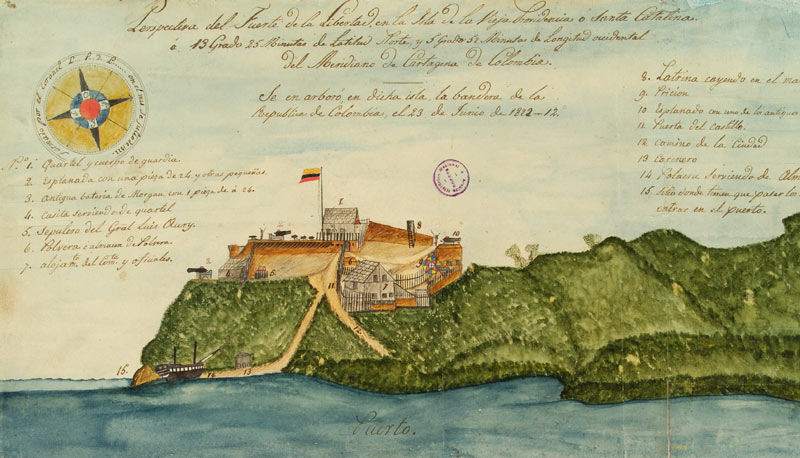 Perspectiva del Fuerte de la Libertad, en la Isla de la Vieja Providencia ó Santa Catalina.
á 13 Grado 25 Minutas de Latitud Norte, y 5 Grado 52 Minutas de Longitud occidental
del Meridiano de Cartagena de Colombia.
Se enarboró, en dicha isla, la bandera de la
Republica de Colombia, el 23 de Junio de 1822-12.
Nº 1. Quartel y cuerpo de guardia.
2. Esplanada con una pieza de 24 y otras pequeñas.
3. antigua bateria de Morgan con 1 pieza de á 26.
4. Casita serviendo de quartel
5. Sepulcro del Gral Luis Aury.
6. Polvera o almacen de Polvora.
7. alojamto del Comte y oficiales.
8. Latrina cayendo en el mar
9. Pricion
10 Esplanada con uno de los antiguos
11. Puerta del Castillo.
12 camino de la Ciudad
13 Carenero
14 Polacra Serviendo de Alm
15 donde tienen que pasar los
entrar en el puerto.
1.
8
10
6.
7
11
12
13
14
15.
Puerto.